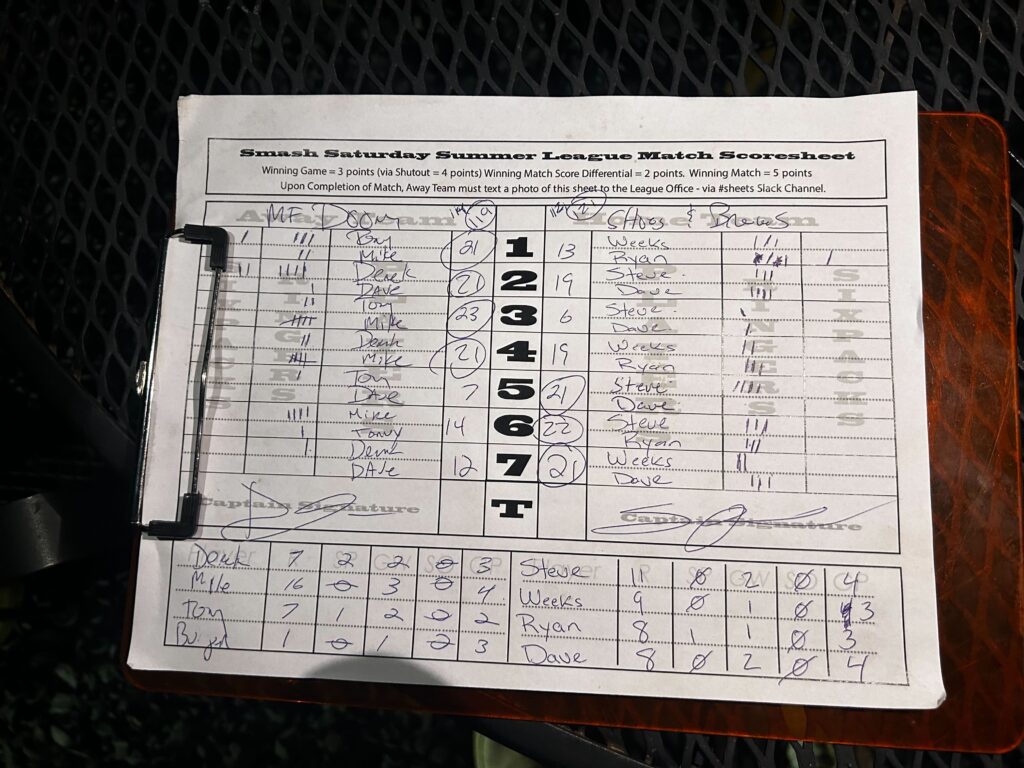 Smash Saturday Summer League Match Scoresheet
Winning Game = 3 points (via Shutout = 4 points) Winning Match Score Differential = 2 points. Winning Match = 5 points
Upon Completion of Match, Away Team must text a photo of this sheet to the League Office - via #sheets Slack Channel.
Away Team MF DOOM 119 121 Home Team &
Tony 21 1 13 Weeks
Mike Ryan
Derek 21 2 19 Steve
DAVE Dave
Tony 23 3 6 Steve
Mike Dave
Derek 21 4 19 Weeks
Mike Ryan
Tony 7 5 21 Steve
DAVE Dave
Mike 14 6 22 Steve
Tony Ryan
Derek 12 7 21 Weeks
DAVE Dave
T
Captain Signature Captain Signature
SIXPACKS RINGERS PLAYERS PLAYERS RINGERS SIXPACKS
Derek 7 2 2 0 3 Steve 11 0 2 0 4
Mike 16 0 3 0 4 Weeks 9 0 1 0 3
Tony 7 1 2 0 2 Ryan 8 1 1 0 3
1 0 1 0 3 Dave 8 0 2 0 4